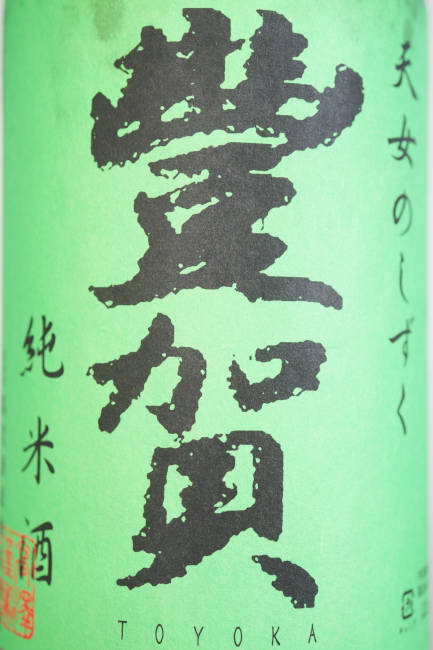 天女のしずく
豐賀
純米酒
TOYOKA